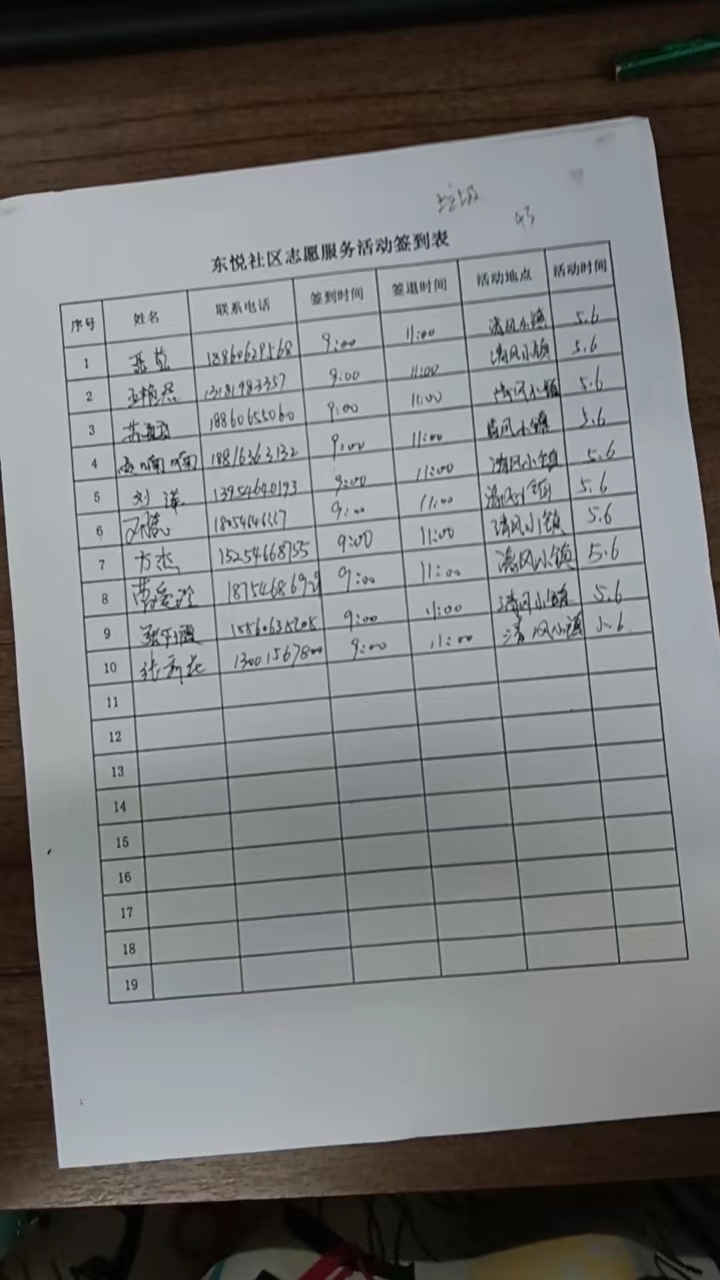 东悦社区志愿服务活动签到表
序号 姓名 联系电话 签到时间 签退时间 活动地点 活动时间
1 18860629568 9:00 11:00 清风小镇 5.6
2 13181983357 9:00 11:00 清风小镇 5.6
3 18860655060 9:00 11:00 清风小镇 5.6
4 18816363132 9:00 11:00 清风小镇 5.6
5 刘洋 13954640193 9:00 11:00 清风小镇 5.6
6 9:00 11:00 清风小镇 5.6
7 方杰 15254668755 9:00 11:00 清风小镇 5.6
8 9:00 11:00 清风小镇 5.6
9 9:00 11:00 清风小镇 5.6
10 13001567800 9:00 11:00 清风小镇 5.6
11
12
13
14
15
16
17
18
19